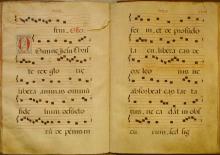 Domine Jesu Chris
te rex glo rie
libera animas omniū
fidelium defuncto
rū de penis in
fer ni, et de profūdo
la cu, libera eas de
ore leo nis ne
absorbeat eas tar ta
rus ne cadant in obs
curum, sed sig